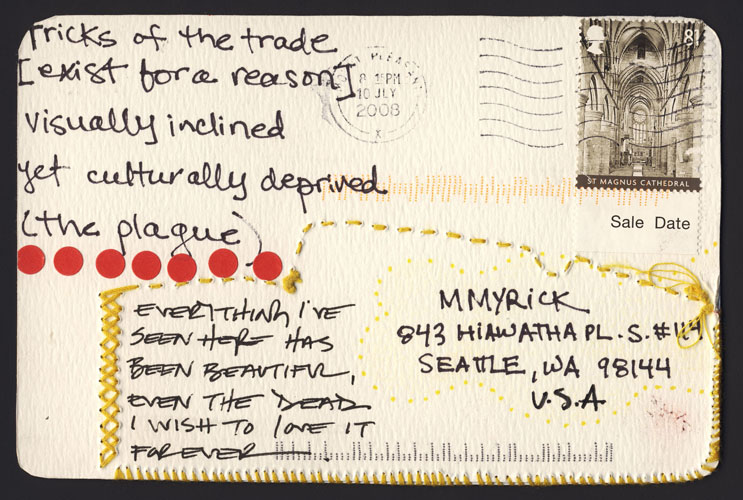 Tricks of the trade
[exist for a reason]
visually inclined
yet culturally deprived
(the plague)
8 15PM
10 JLY
2008
X
8
ST MAGNUS CATHEDRAL
Sale Date
EVERYTHING I'VE
SEEN HERE HAS
BEEN BEAUTIFUL,
EVEN THE DEAD
I WISH TO LOVE IT
FOREVER
MMYRICK
843 HIAWATHA PL. S. #114
SEATTLE, WA 98144
U.S.A